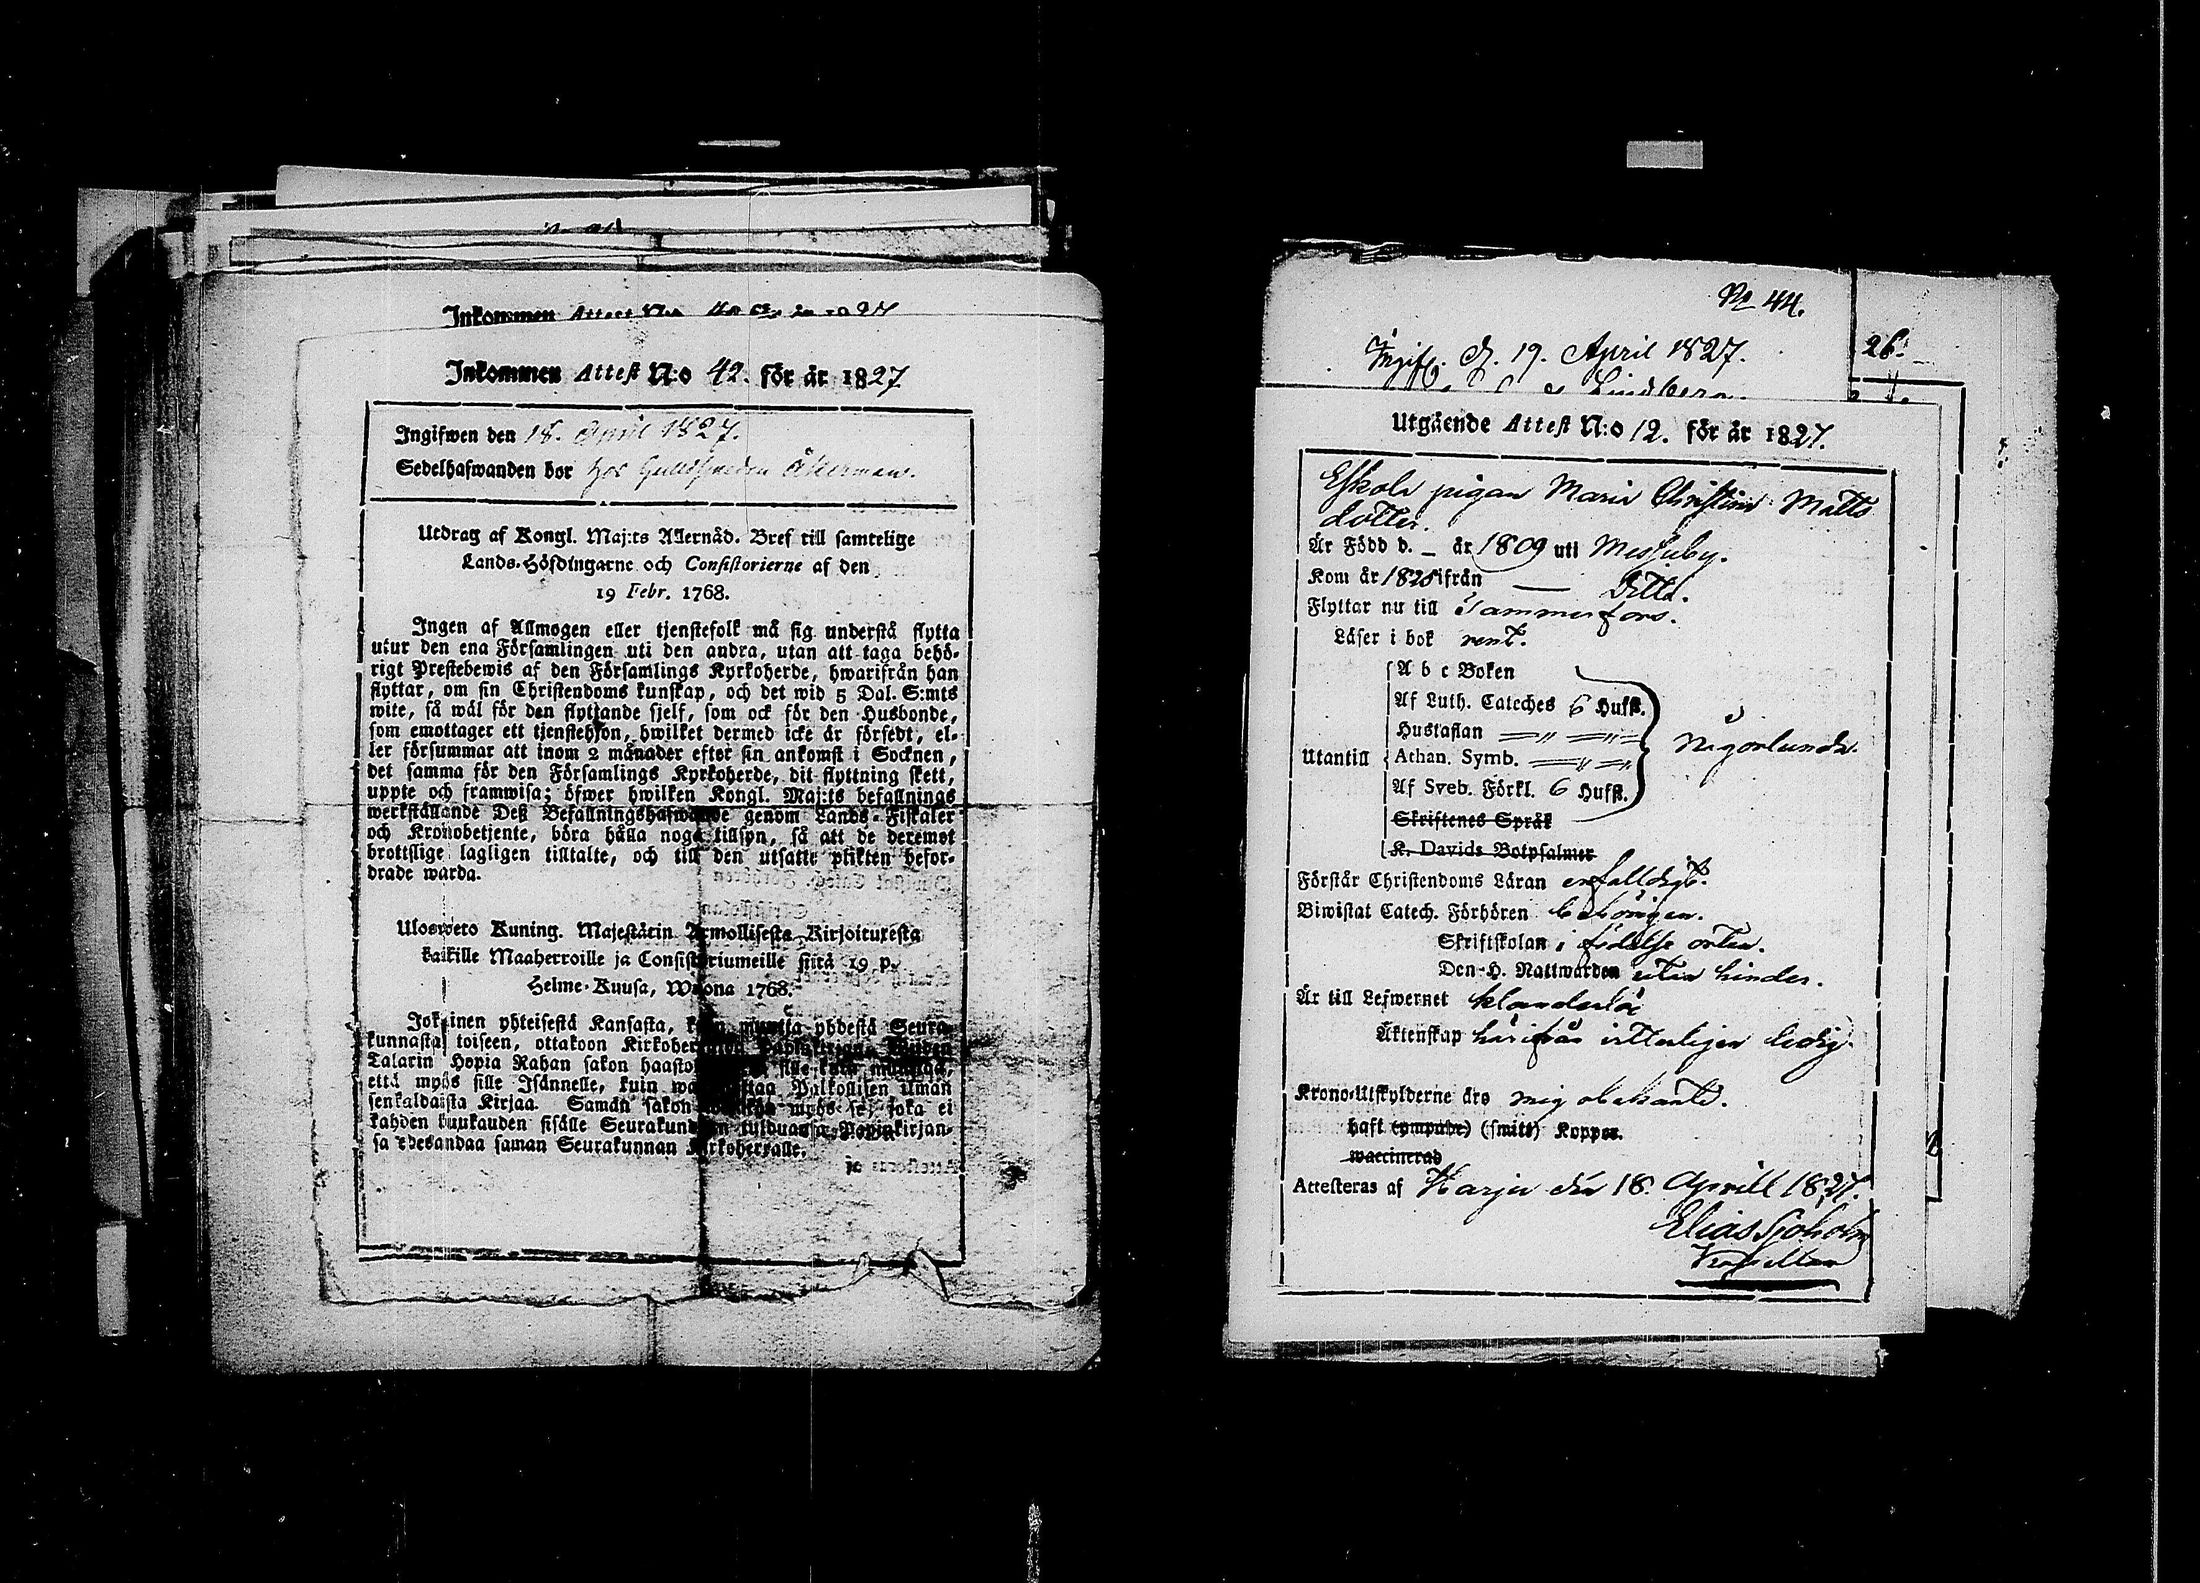 Inkommen Attest N:o 42. för år 1827
Ingifwen den 18. April 1827.
Sedelhafwanden bor hos Guldsmeden Åkerman.
Utdrag af Kongl. Maj:ts Allernåd. Bref till samtelige
Lands-Höfdingarne och Consistorierne af den
19 Febr. 1768.
Ingen af Allmogen eller tjenstefolk må sig understå flytta
utur den ena Församlingen uti den andra, utan att taga behö-
rigt Prestebewis af den Församlings Kyrkoherde, hwarifrån han
flyttar, om sin Christendoms kunskap, och det wid 5 Dal. S:mts
wite, så wäl för den flyttande sjelf, som ock för den Husbonde,
som emottager ett tjenstehjon, hwilket dermed icke är försedt, el-
ler försummar att inom 2 månader efter sin ankomst i Socknen,
det samma för den Församlings Kyrkoherde, dit flyttning skett,
uppte och framwisa; öfwer hwilken Kongl. Maj:ts befallnings
werkställande Deß Befallningshafwande genom Lands-Fiskaler
och Kronobetjente, böra hålla noga tillsyn, så att de deremot
brottslige lagligen tilltalte, och till den utsatte plikten befor-
drade warda.
Ulosweto Kuning. Majestätin Armollisesta Kirjoituresta
kaikille Maaherroille ja Consistoriumeille siitä 19 p.
Helme-Kuusa, Wuonna 1768.
Jokainen yhteisestä Kansasta, muutta yhdestä Seura-
kunnasta toiseen, ottakoon Kirkoher
Talarin Hopia Rahan sakon haasto
että myös sille Isännelle, kuin wa Palkollisen ilman
senkaldaista Kirjaa. Samän sakon myös se, joka ei
kahden kuukauden sisälle Seurakundaan tulduansa, Papinkirjan-
sa edesandaa saman Seurakunnan Kirkoherralle.
No 44.
Ingif. d. 19. April 1827.
Lindberg
26.
Utgående Attest N:o 12. för år 1827.
Eskola pigan Maria Christina Matts
dotter.
Är Född d. _ år 1809 uti Messuby.
Kom år 1825 ifrån — Ditto.
Flyttar nu till Tammerfors.
Läser i bok rent.
A b c Boken
Af Luth. Cateches 6 Hufst.
Hustaflan — " — " —
Utantill Athan. Symb. — " — "
Af Sveb. Förkl. 6 Hufst.
Någorlunda.
Skriftenes Språk
K. Davids Botpsalmer
Förstår Christendoms Läran enfalldigt.
Biwistat Catech. Förhören behörigen.
Skriftskolan i födelse orten.
Den H. Nattwarden utan hinder.
Är till Lefwernet klanderlös
Äktenskap härifrån witterligen ledig.
Krono-Utskylderne äro mig obekante.
haft (ympade) (smitt) Koppor.
waccinerad
Attesteras af Harju den 18. Aprill 1827.
Elias Sjöholm
Kapellan